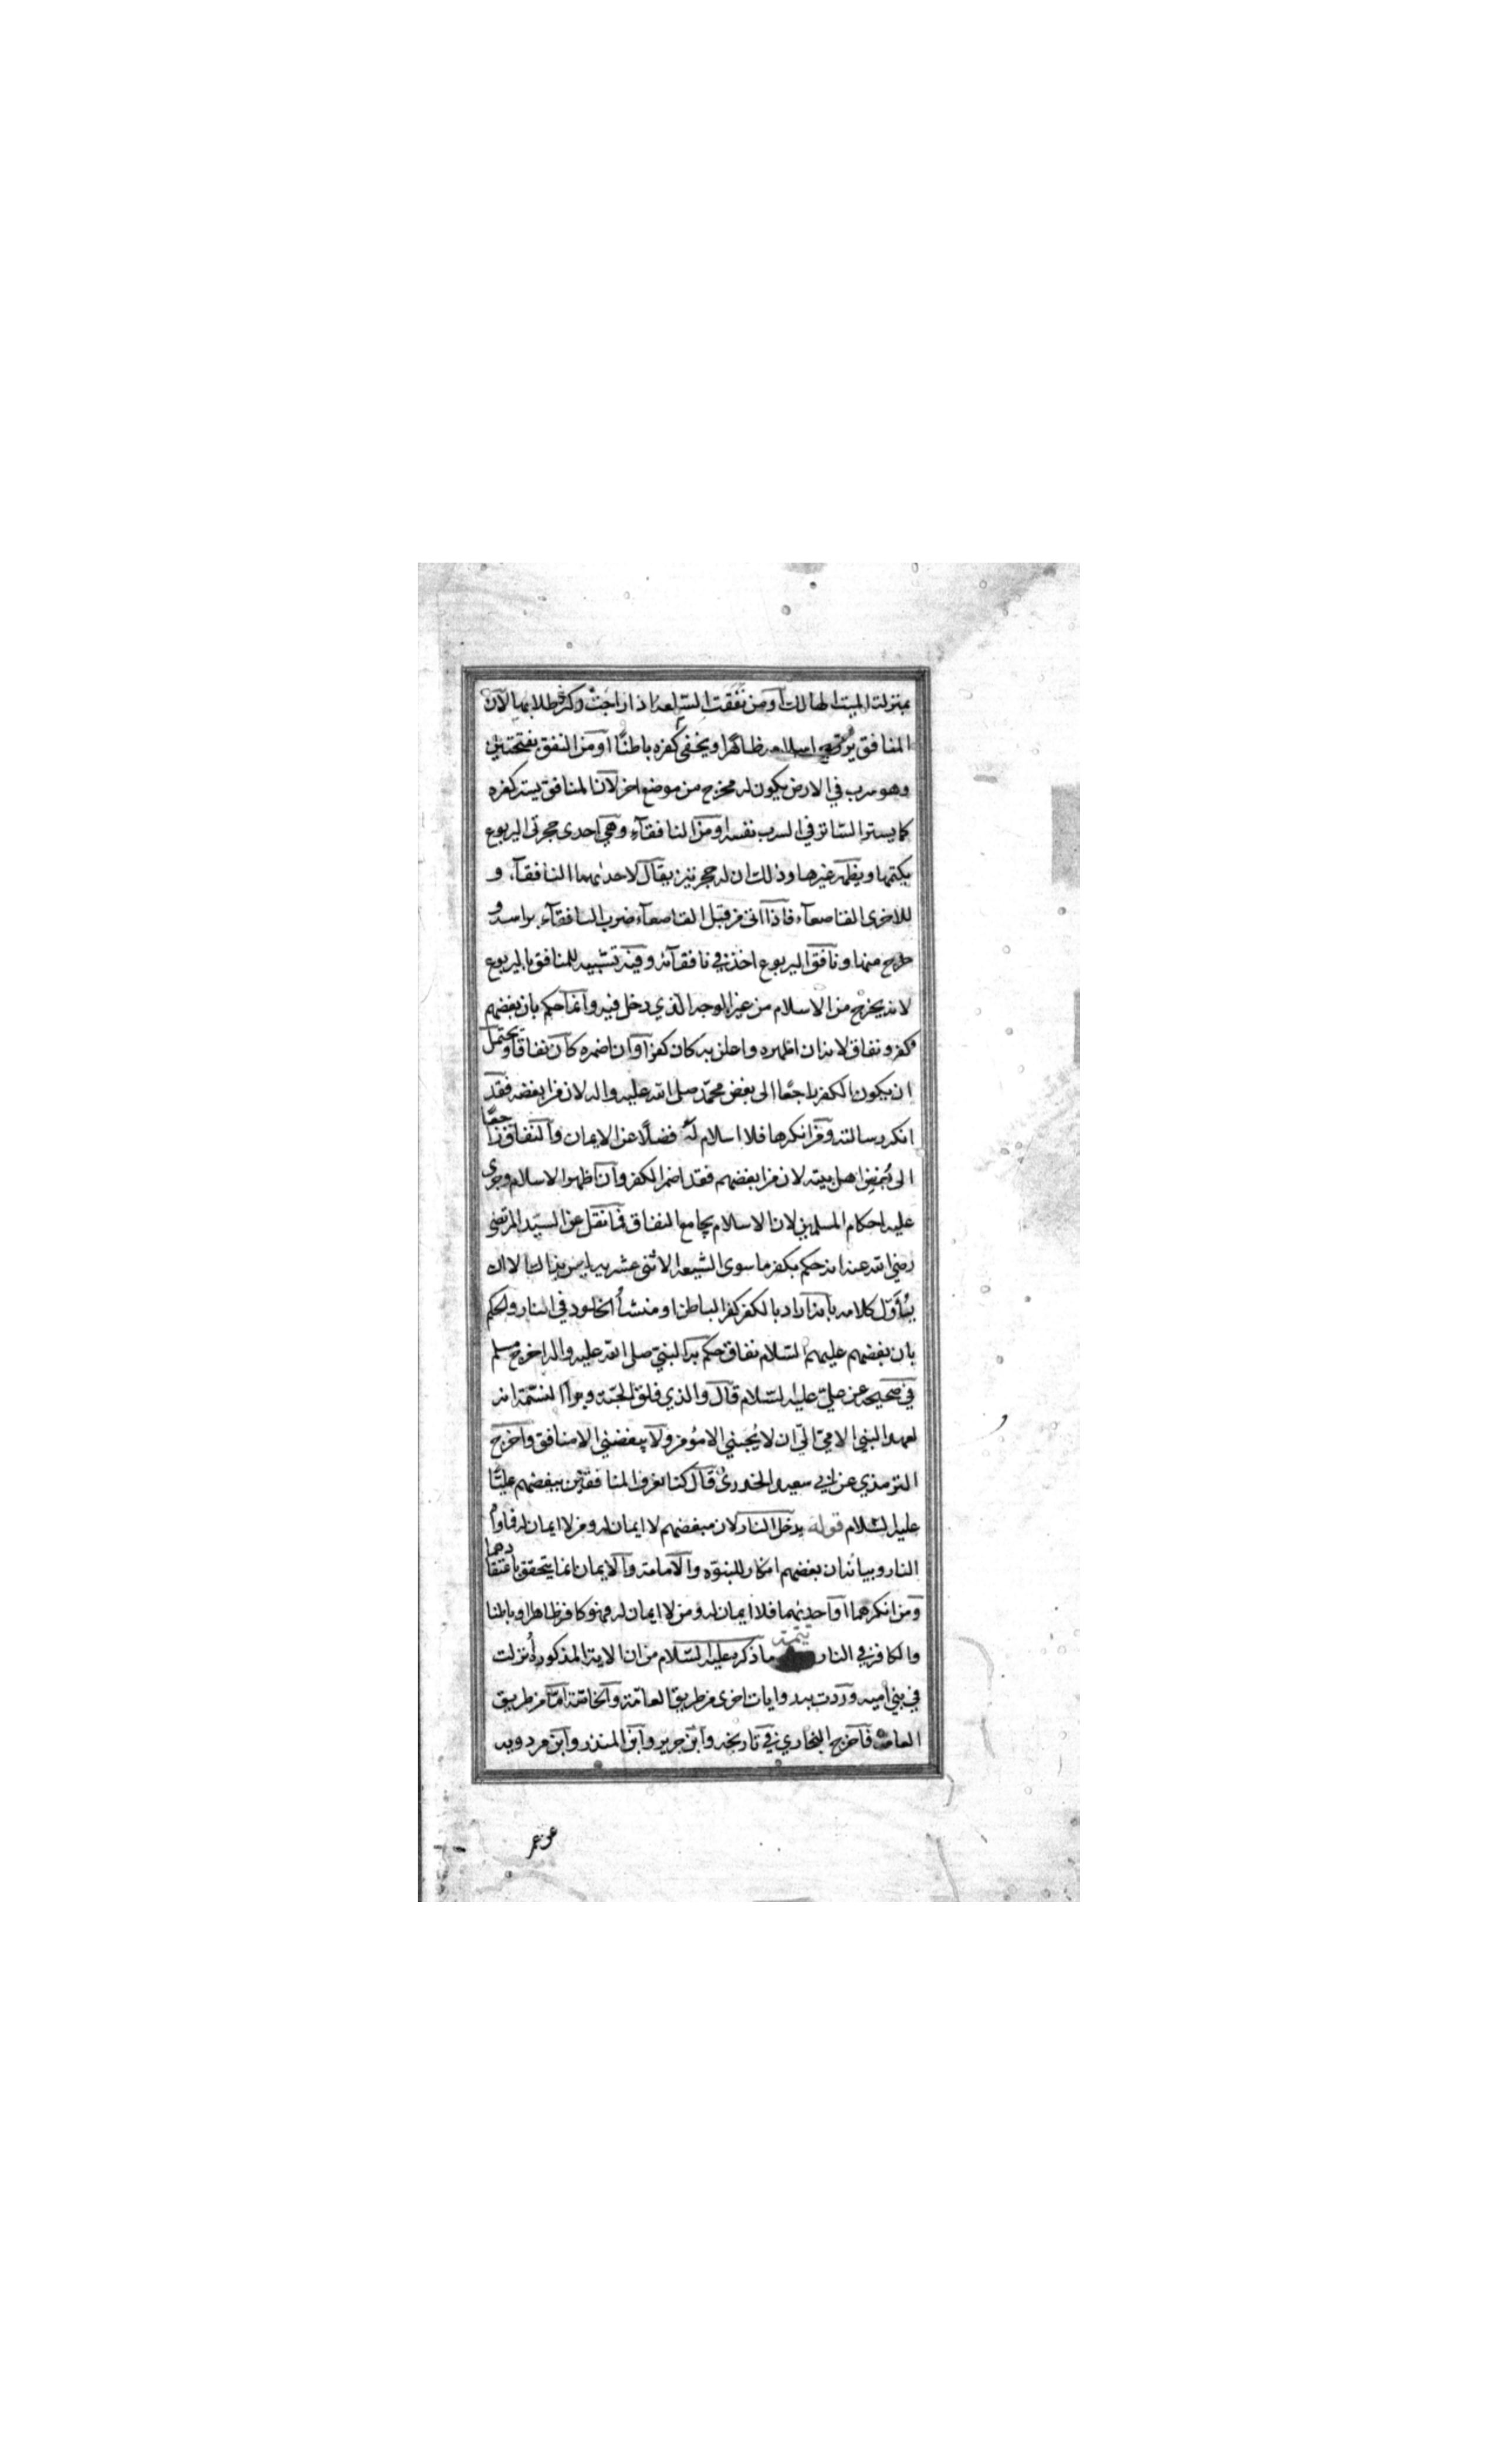 بمنزلة الميت الهالك أو من نفقت السلعة اذا راجت وكثر طلابها لان
المنافق يروج اسلامه ظاهرا ويخفى كفره باطنا او من النفق بفتحتين
وهو سرب في الارض يكون له مخرج من موضع اخر لان المنافق يستر كفره
كما يستر السائر في السرب نفسه او من النافقآء وهي احدى جحرتى اليربوع
يكتمها ويظهر غيرها وذلك ان له جحرتين يقال لاحدٰىهما النافقآء و
للاخرى القاصعآء فاذا اتى من قبل القاصعآء ضرب النافقآء براسه و
خرج منها ونافق اليربوع اخذ في نافقآئه وفيه تشبيه للمنافق باليربوع
لانه يخرج من الاسلام من غير الوجه الذي دخل فيه وانما حكم بان بغضهم
كفر ونفاق لانه ان اظهره واعلن به كان كفرا وان اضمره كان نفاقا ويحتمل
ان يكون الكفر راجعا الى بغض محمد صلى الله عليه واله لان من ابغضه فقد
انكر رسالته ومن انكرها فلا اسلام له فضلا عن الايمان والنفاق راجعا
الى بُغض اهل بيته لان من ابغضهم فقد اضمر الكفر وان اظهر الاسلام وجرى
عليه احكام المسلمين لان الاسلام يجامع النفاق فما نقل عن السيد المرتضى
رضي الله عنه انه حكم بكفر ما سوى الشيعة الاثنى عشرية ليس بذاك الا ان
يُأوّل كلامه بانه اراد بالكفر كفر الباطن او منشأ الخلود في النار والحكم
بان بغضهم عليهم السلام نفاق حكم به النبي صلى الله عليه واله اخرج مسلم
في صحيحه عن علي عليه السلام قال والذي فلق الحبة وبرأ النسمة انه
لعهد النبي الامي الىّ ان لا يُحبني الا مؤمن ولا يبغضني الا منافق واخرج
الترمذي عن ابي سعيد الخدري قال كنا نعرف المنافقين ببغضهم عليّا
عليه السلام قوله يدخل النار لان مبغضهم لا ايمان له ومن لا ايمان له فماواه
النار وبيانه ان بغضهم انكار للنبوّه والامامة والايمان انما يتحقق باعتقادهما
ومن انكرهما او احدٰىهما فلا ايمان له ومن لا ايمان له فهو كافر ظاهرا وباطنا
والكافر في النار تتمة ما ذكره عليه السلام من ان الاية المذكورة نزلت
في بني اميه وردت به روايات اخرى من طريق العامة والخاصة امّا من طريق
العامة فاخرج البخاري في تاريخه وابن جرير وابن المنذر وابن مردويه
عن عمر